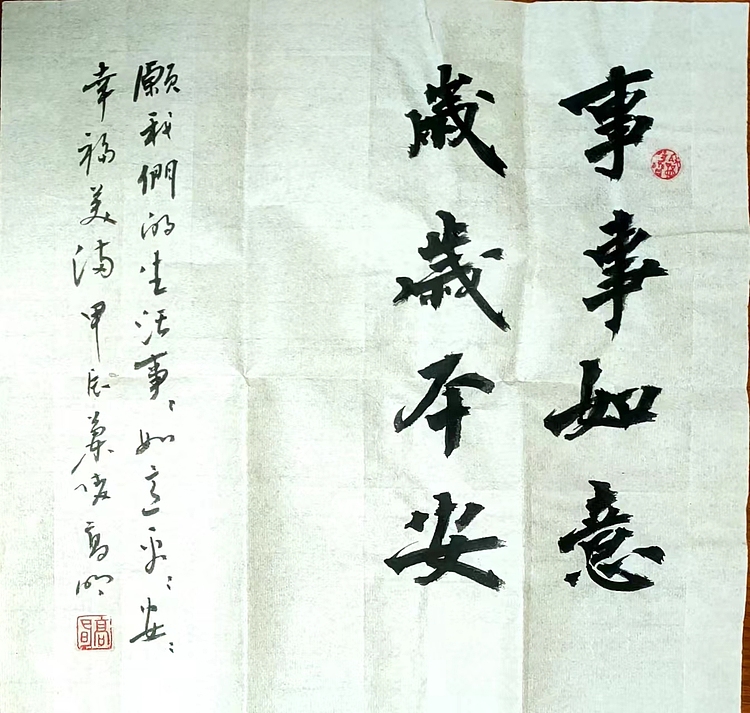 事事如意
歲歲平安
願我們的生活事〻如意平〻安〻
幸福美滿甲辰高明